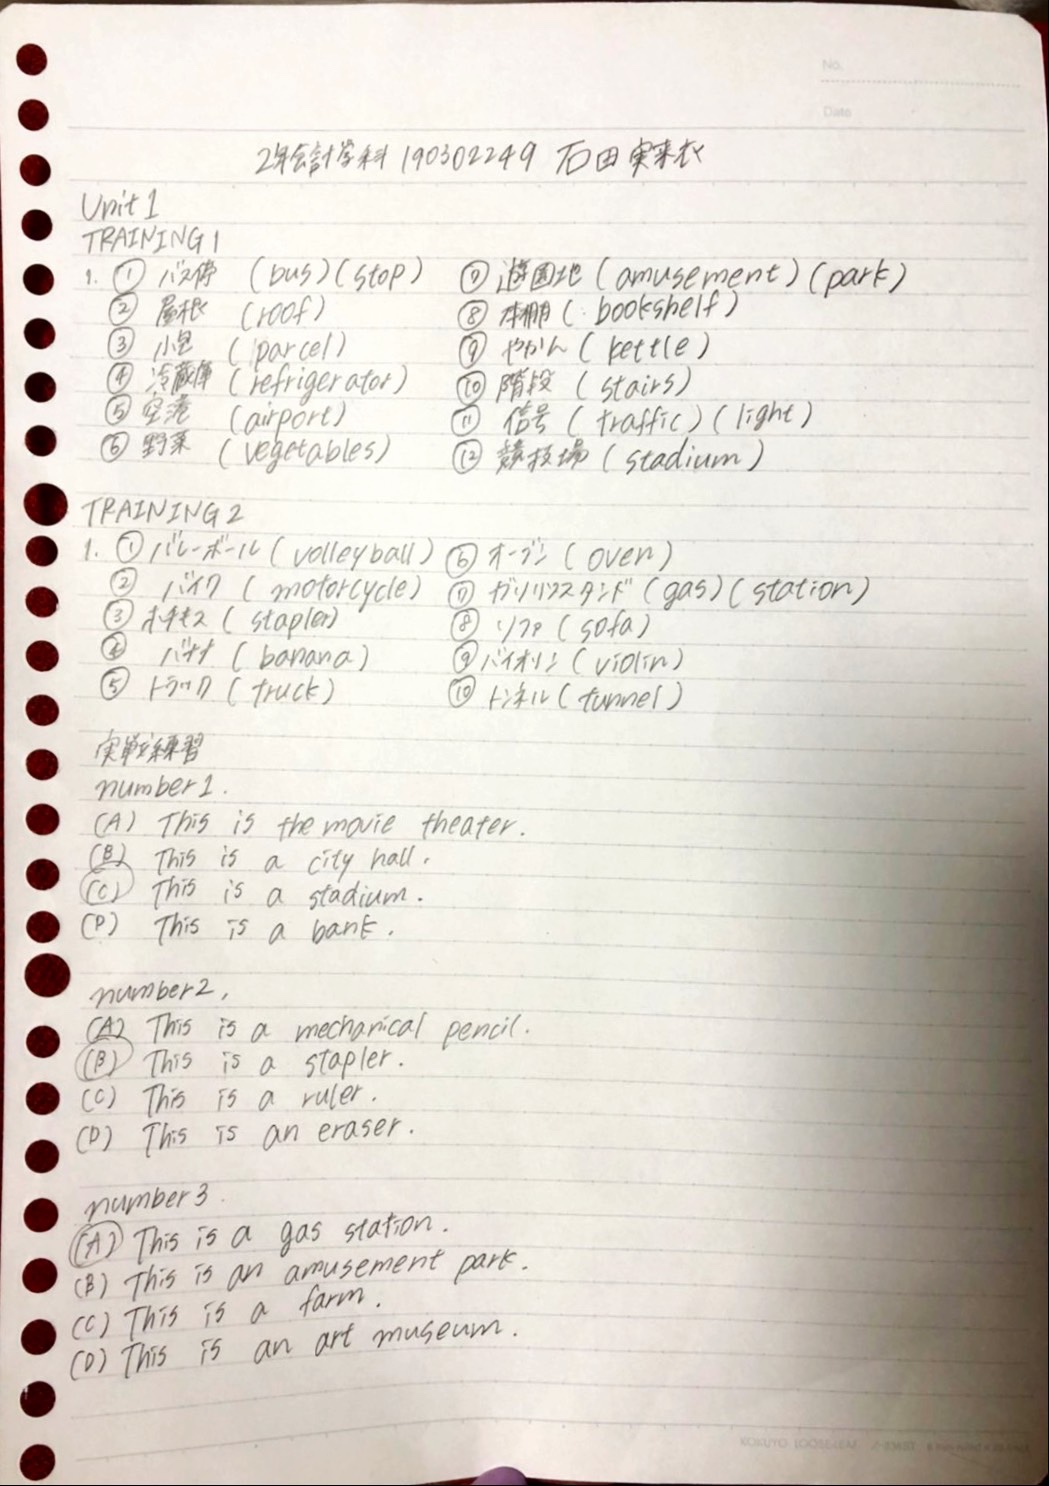 No.
Date
2年会計学科 190302249 石田実来衣
Unit1
TRAINING1
1. ① バス停 (bus)(stop)
② 屋根 (roof)
③ 小包 (parcel)
④ 冷蔵庫 (refrigerator)
⑤ 空港 (airport)
⑥ 野菜 (vegetables)
⑦ 遊園地 (amusement)(park)
⑧ 本棚 (bookshelf)
⑨ やかん (kettle)
⑩ 階段 (stairs)
⑪ 信号 (traffic)(light)
⑫ 競技場 (stadium)
TRAINING2
1. ① バレーボール (volleyball)
② バイク (motorcycle)
③ ホチキス (stapler)
④ バナナ (banana)
⑤ トラック (truck)
⑥ オーブン (oven)
⑦ ガソリンスタンド (gas)(station)
⑧ ソファ (sofa)
⑨ バイオリン (violin)
⑩ トンネル (tunnel)
実戦練習
number1.
(A) This is the movie theater.
(B) This is a city hall.
(C) This is a stadium.
(D) This is a bank.
number2.
(A) This is a mechanical pencil.
(B) This is a stapler.
(C) This is a ruler.
(D) This is an eraser.
number3.
(A) This is a gas station.
(B) This is an amusement park.
(C) This is a farm.
(D) This is an art museum.